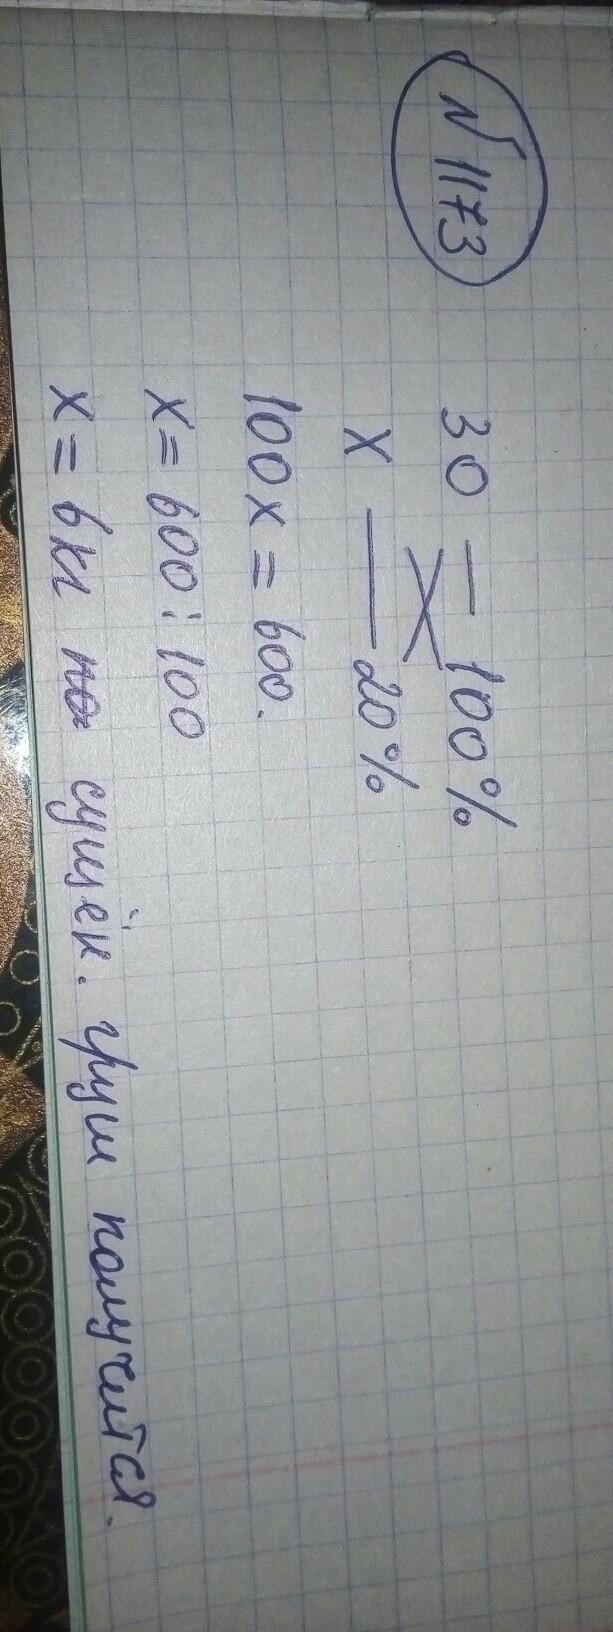 №1173
30 — 100%
х — 20%
100х = 600.
х = 600 : 100
х = 6кг сушён. груш получится.